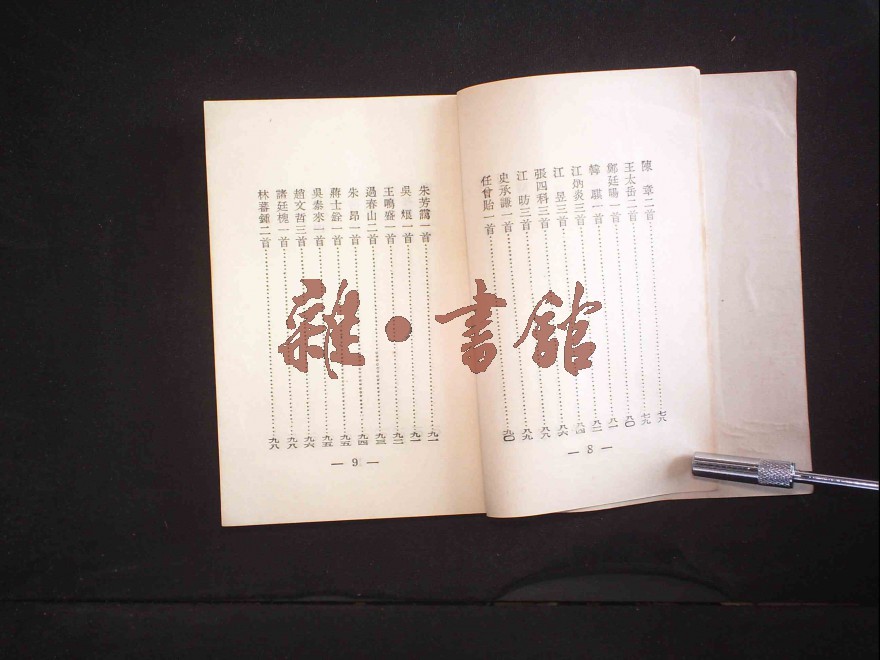 陳　章二首……七八
王太岳二首……七九
鄭廷暘一首……八〇
韓　騏一首……八一
江炳炎三首……八二
江　昱三首……八四
張四科三首……八六
江　昉三首……八八
史承謙一首……八九
任曾貽一首……九〇
— 8 —
朱芳靄一首……九一
吳　烺一首……九一
王鳴盛一首……九二
過春山二首……九三
朱　昂一首……九四
蔣士銓一首……九五
吳泰來一首……九五
趙文哲三首……九六
諸廷槐一首……九八
林蕃鍾二首……九八
— 9 —
雜·書館